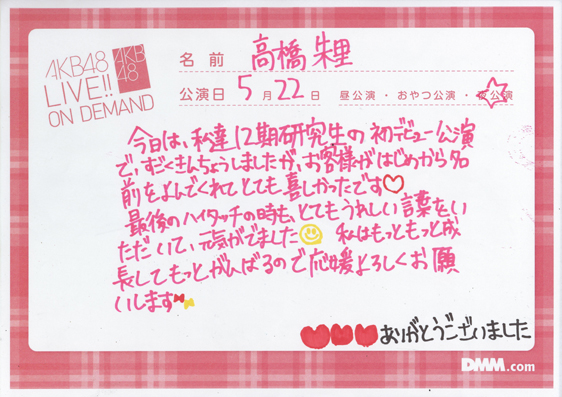 AKB48
LIVE!!
ON DEMAND
AKB
48
名前 高橋朱里
公演日 5月22日 昼公演・おやつ公演・夜公演
今日は、私達12期研究生の初デビュー公演
で、すごくきんちょうしましたが、お客様がはじめから名
前をよんでくれてとても喜しかったです♡
最後のハイタッチの時も、とてもうれしい言葉をい
ただいて、元気がでました 私はもっともっと成
長してもっとがんばるので応援よろしくお願
いします
ありがとうございました
DMM.com